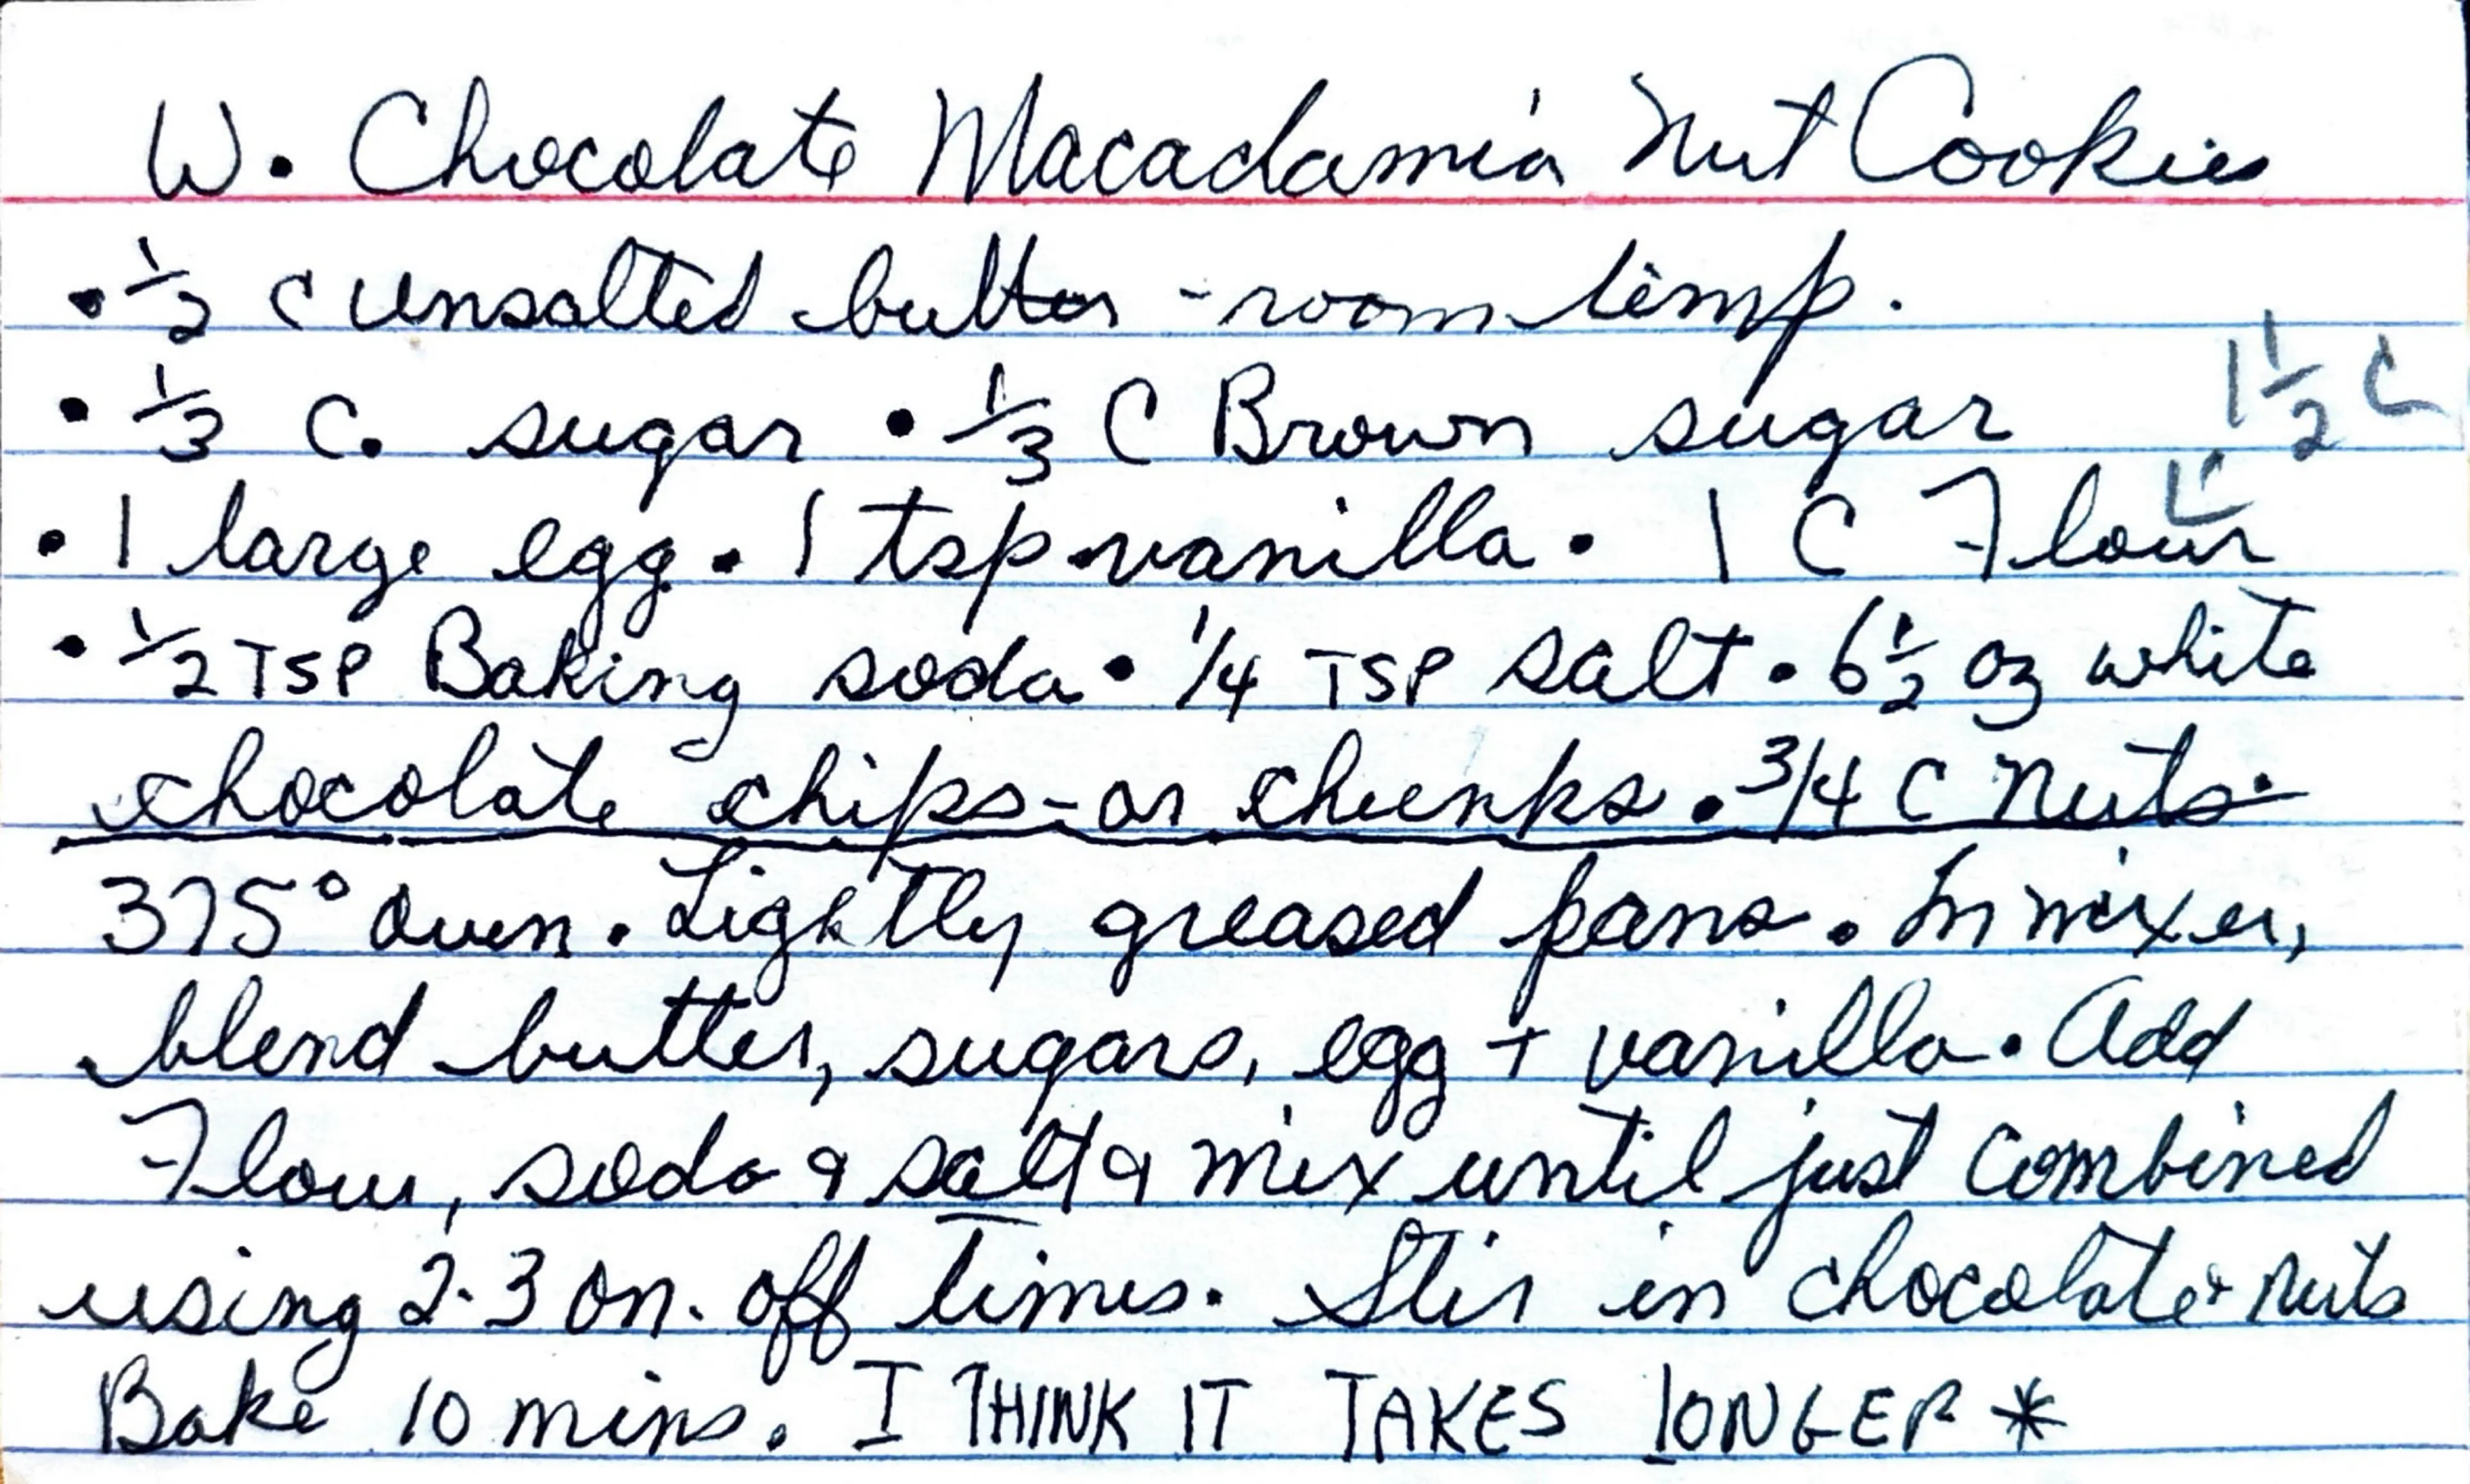 W. Chocolate Macadamia Nut Cookies
• 1/2 c unsalted butter - room temp.
• 1/3 C. sugar • 1/3 C Brown sugar 1 1/2 C
• 1 large egg • 1 tsp vanilla • 1 C Flour
• 1/2 TSP Baking soda • 1/4 TSP salt • 6 1/2 oz white
chocolate chips - or chunks • 3/4 C Nuts.
375° oven. Lightly greased pans. In mixer,
blend butter, sugars, egg + vanilla. Add
Flour, soda & salt & mix until just combined
using 2-3 on-off times. Stir in chocolate + nuts
Bake 10 mins. I THINK IT TAKES LONGER *